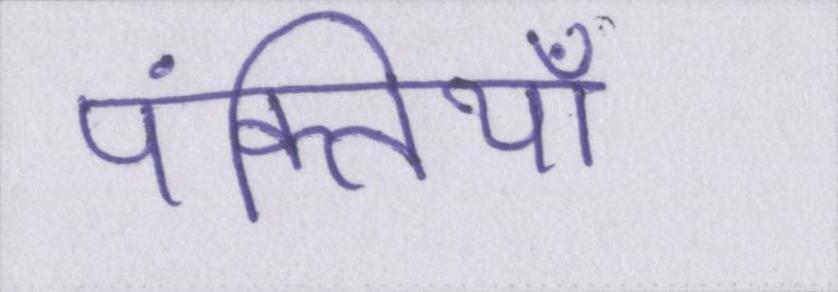 पंक्तियाँ